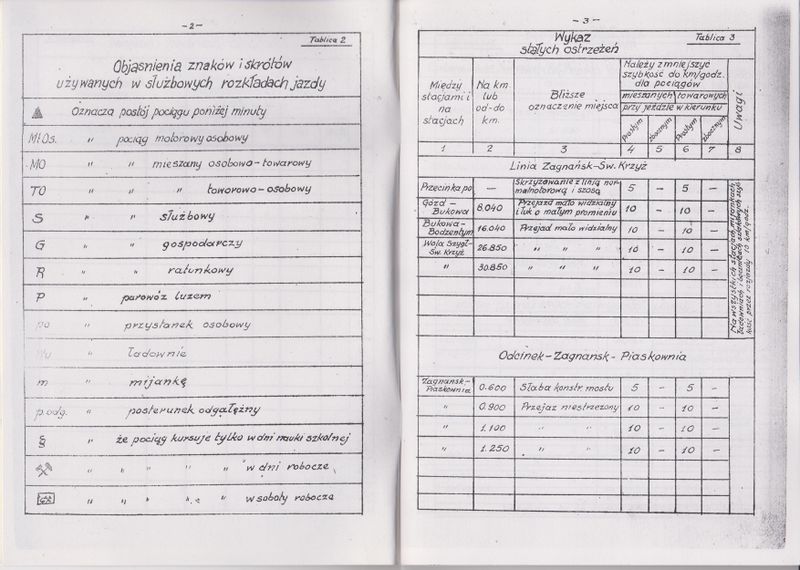 - 2 -
Tablica 2
Objaśnienia znaków i skrótów
używanych w służbowych rozkładach jazdy
▲ Oznacza postój pociągu poniżej minuty
Mt Os. " pociąg motorowy osobowy
MO " " mieszany osobowo - towarowy
TO " " " towarowo - osobowy
S " " służbowy
G " " gospodarczy
R " " ratunkowy
P " parowóz luzem
po " przystanek osobowy
" ładownię
m " mijankę
p.odg. " posterunek odgałęźny
§ " że pociąg kursuje tylko w dni nauki szkolnej
⚒ " " " " " w dni robocze
" " " " " w soboty robocze
- 3 -
Wykaz
stałych ostrzeżeń
Tablica 3
Między stacjami i na stacjach
Na km lub od-do km.
Bliższe oznaczenie miejsca
Należy zmniejszyć szybkość do km/godz. dla pociągów
mieszanych towarowych
przy jeździe w kierunku
Prostym zbocznym Prostym zbocznym
Uwagi
1 2 3 4 5 6 7 8
Linia Zagnańsk-Św. Krzyż
Przecinka po — Skrzyżowanie z linią normalnotorową i szosą 5 - 5 -
Gózd - Bukowa 8.040 Przejazd mało widzialny i łuk o małym promieniu 10 - 10 -
Bukowa - Bodzentyn 16.040 Przejazd mało widzialny 10 - 10 -
Wola Szygł- Św. Krzyż 26.850 " " " 10 - 10 -
" 30.850 " " " 10 - 10 -
Na wszystkich stacjach, mijankach,
ładowniach i szybkość przez rozjazdy 10 km/godz.
Odcinek - Zagnańsk - Piaskownia
Zagnańsk - Piaskownia 0.600 Słaba konstr. mostu 5 - 5 -
" 0.900 Przejaz niestrzeżony 10 - 10 -
" 1.100 " " 10 - 10 -
" 1.250 " " 10 - 10 -